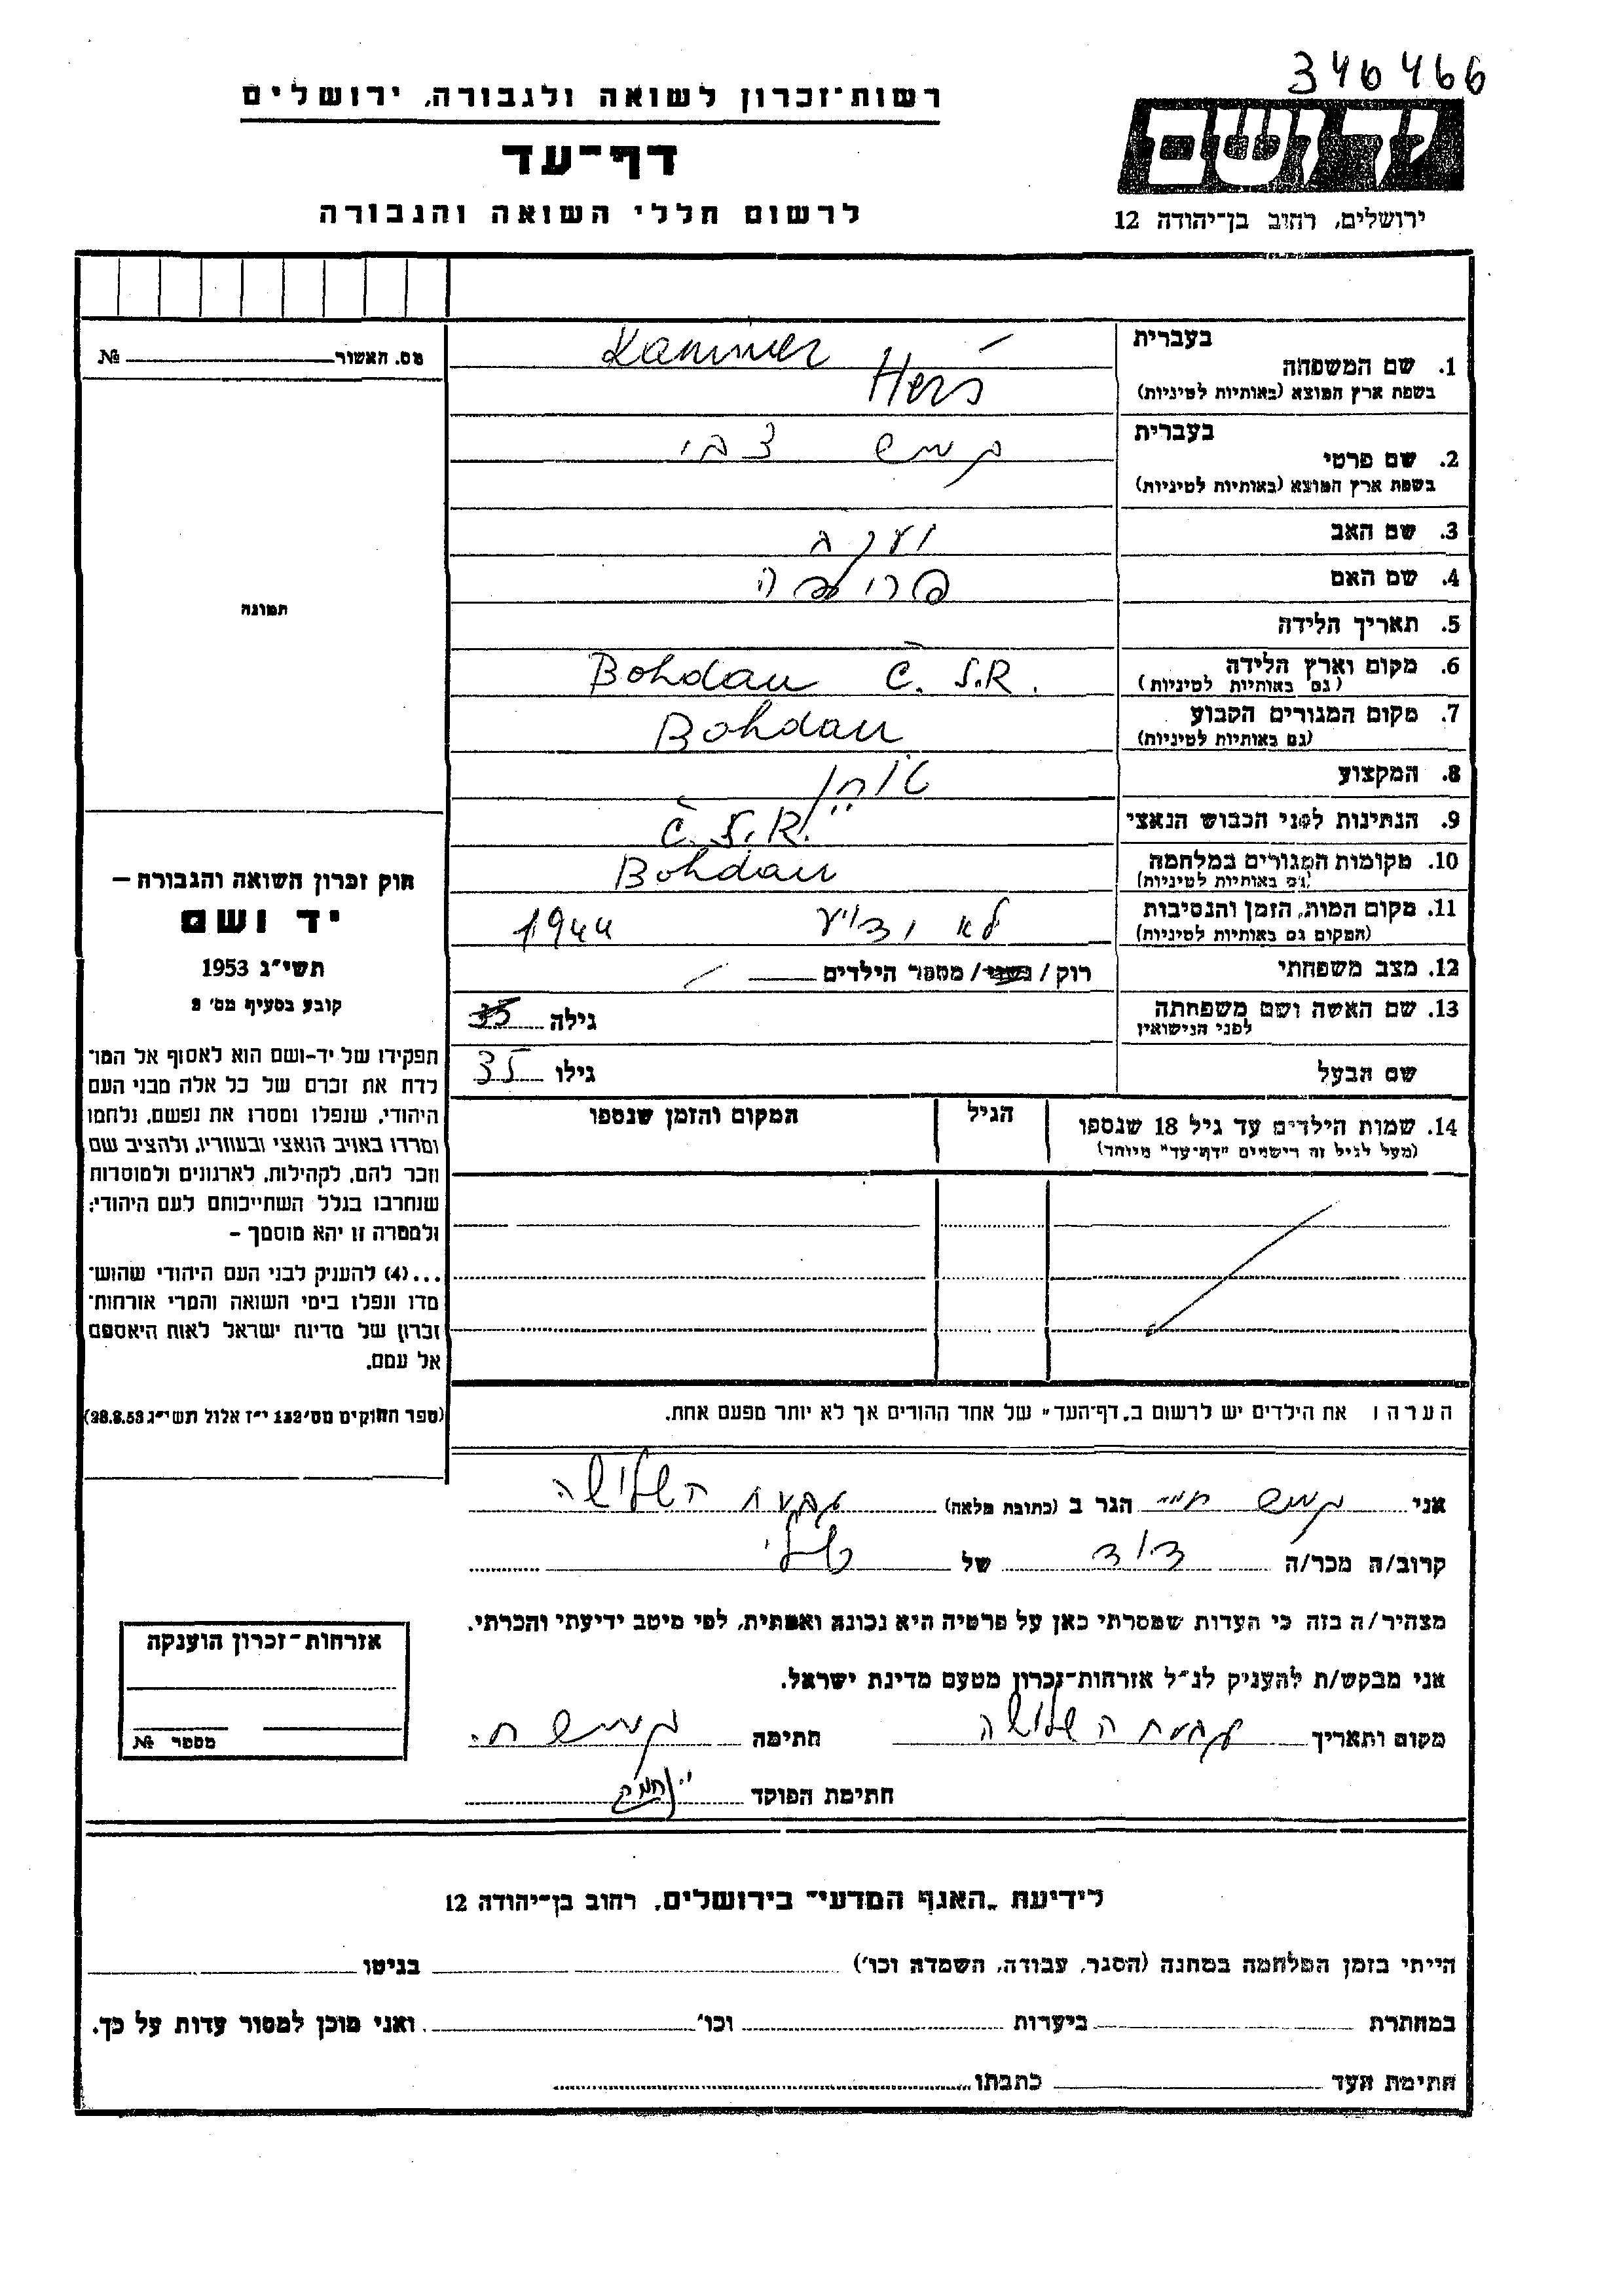 346466
רשות־זכרון לשואה ולגבורה, ירושלים
דף־עד
לרשום חללי השואה והגבורה
יד ושם
ירושלים, רחוב בן־יהודה 12
מס. האשור № 
תמונה
בעברית
1. שם המשפחה Kammer
(בשפת ארץ המוצא (באותיות לטיניות Herš
בעברית
2. שם פרטי צבי
(בשפת ארץ המוצא (באותיות לטיניות
3. שם האב
4. שם האם
5. תאריך הלידה
6. מקום וארץ הלידה Bohdan Č.S.R.
(גם באותיות לטיניות)
7. מקום המגורים הקבוע Bohdan
(גם באותיות לטיניות)
8. המקצוע
9. הנתינות לפני הכבוש הנאצי Č.S.R.
10. מקומות המגורים במלחמה Bohdan
(גם באותיות לטיניות)
11. מקום המות, הזמן והנסיבות לא ידוע 1944
(המקום גם באותיות לטיניות)
12. מצב משפחתי רוק / נשוי / מספר הילדים
13. שם האשה ושם משפחתה לפני הנישואין גילה 35
שם הבעל גילו 35
14. שמות הילדים עד גיל 18 שנספו הגיל המקום והזמן שנספו
(מעל לגיל זה רישמים "דף־עד" מיוחד)
הערה: את הילדים יש לרשום ב„דף־העד" של אחד ההורים אך לא יותר מפעם אחת.
חוק זכרון השואה והגבורה —
יד ושם
תשי"ג 1953
קובע בסעיף מס' 2
תפקידו של יד־ושם הוא לאסוף אל המו־
לדת את זכרם של כל אלה מבני העם
היהודי, שנפלו ומסרו את נפשם, נלחמו
ומרדו באויב הנאצי ובעוזריו, ולהציב שם
וזכר להם, לקהילות, לארגונים ולמוסדות
שנחרבו בגלל השתייכותם לעם היהודי;
ולמטרה זו יהא מוסמך —
...(4) להעניק לבני העם היהודי שהוש־
מדו ונפלו בימי השואה והמרי אזרחות־
זכרון של מדינת ישראל לאות היאספם
אל עמם.
(ספר החוקים מס' 132 י"ז אלול תשי"ג 28.8.53)
אני הגר ב (כתובת מלאה) גבעת השלושה
קרוב/ה מכר/ה דוד של
מצהיר/ה בזה כי העדות שמסרתי כאן על פרטיה היא נכונה ואמתית, לפי מיטב ידיעתי והכרתי.
אני מבקש/ת להעניק לנ"ל אזרחות־זכרון מטעם מדינת ישראל.
מקום ותאריך גבעת השלושה חתימה
חתימת הפוקד
אזרחות־זכרון הוענקה
מספר №
לידיעת „האגף המדעי" בירושלים, רחוב בן־יהודה 12
הייתי בזמן המלחמה במחנה (הסגר, עבודה, השמדה וכו') בגיטו
במחתרת ביערות וכו' ואני מוכן למסור עדות על כך.
חתימת העד כתבתו